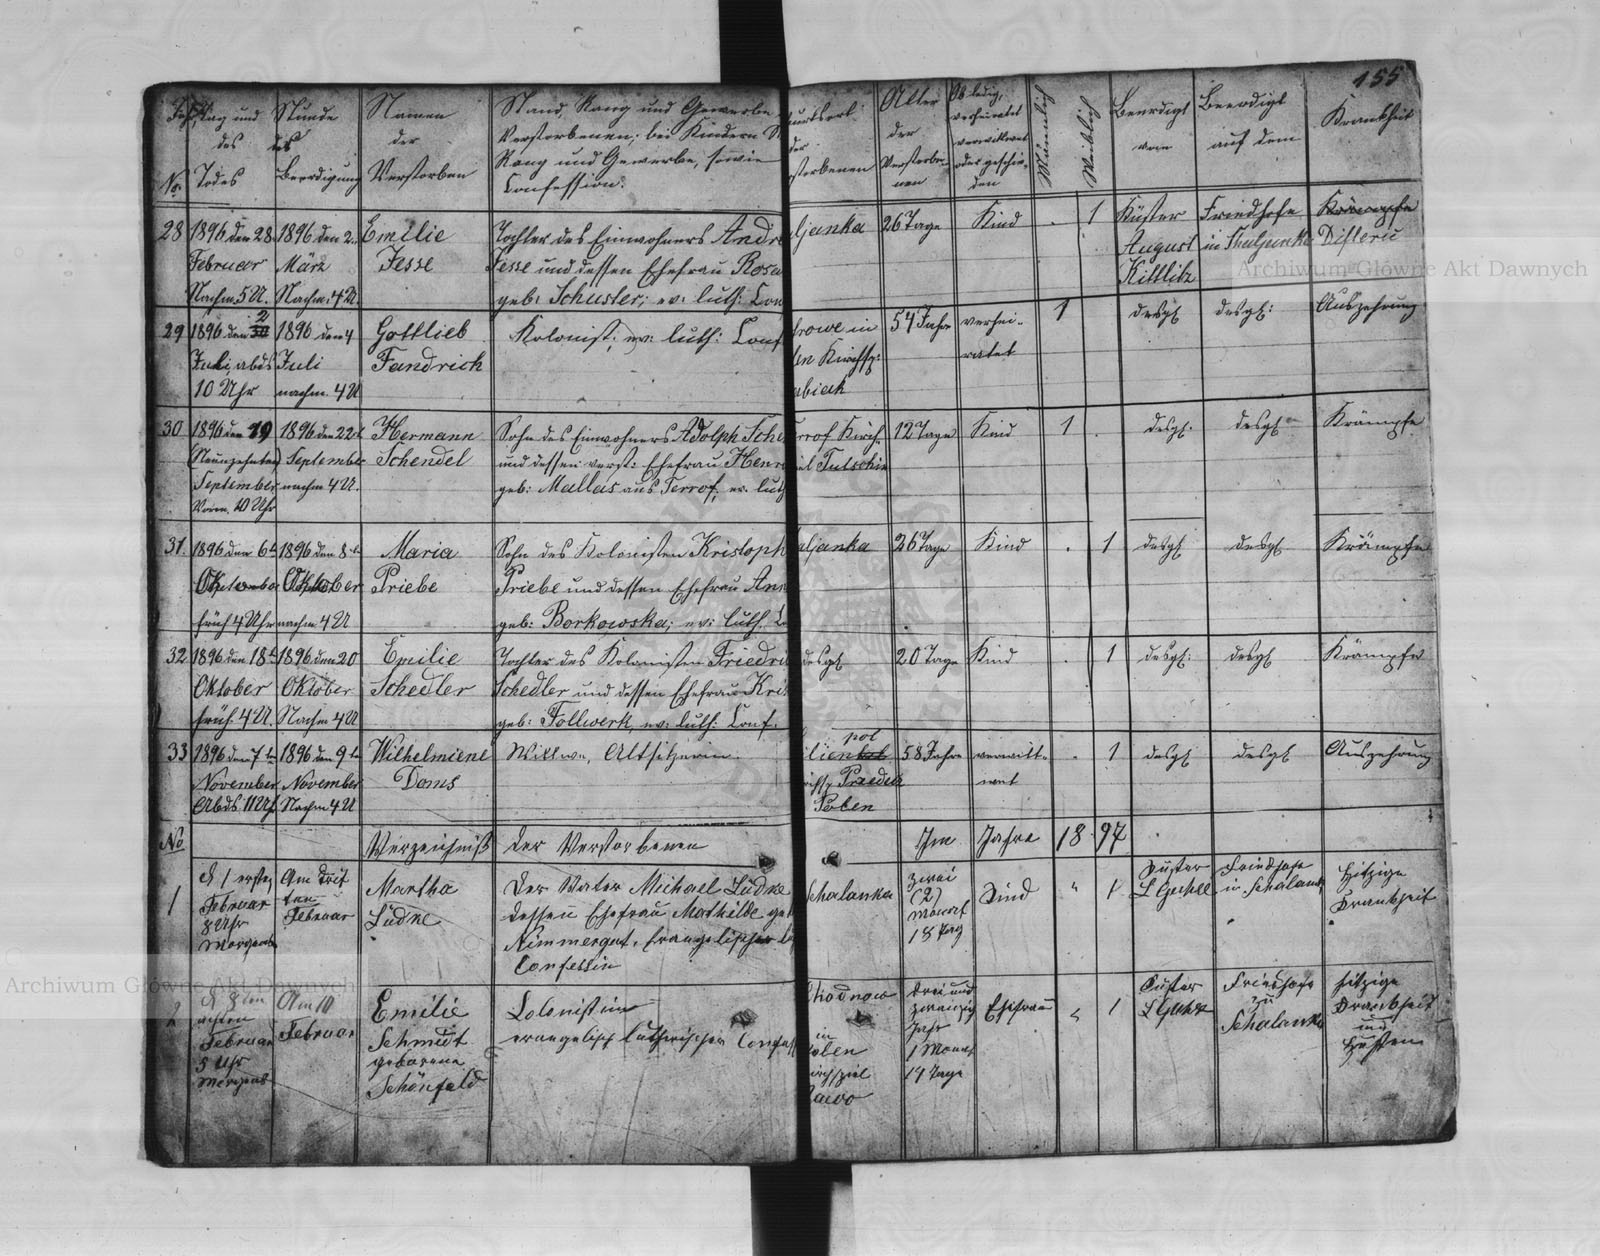 155
No.
Tag und
des
Todes
Stunde
des
Beerdigung
Namen
der
Verstorben
Stand, Rang und Gewerbe
Verstorbenen; bei Kindern
Rang und Gewerbe, sowie
Confession.
Alter
der
Verstorbe-
nen
Ob ledig,
verheiratet
verwittwet
oder geschie-
den
Männlich
Weiblich
Beerdigt
vom
Beerdigt
auf dem
Krankheit
28
1896 den 28.
Februar
Nachm. 5 U.
1896 den 2.
März
Nachm. 4 U.
Emilie
Jesse
Tochter des Einwohners Andre
Jesse und dessen Ehefrau Rosa
geb: Schuster; ev: luth: Con
ljanka
26 Tage
Kind
.
1
Küster
August
Kittlitz
Friedhofe
in Schaljanka
Krämpfe
Difteric
29
1896 den 2
Juli, abds
10 Uhr
1896 den 4
Juli
nachm. 4 U
Gottlieb
Fandrich
Kolonist; ev: luth: Conf
rowe in
en Kirchsp:
abiak
54 Jahr
verhei-
ratet
1
desgl
desgl:
Auszehrung
30
1896 den 19
(Neunzehnten)
September
Vorm. 10 Uhr
1896 den 22t
September
nachm 4 U.
Hermann
Schendel
Sohn des Einwohners Adolph Sche
und dessen verst: Ehefrau Henr
geb: Mallas aus Terrof; ev: luth
rrof Kirch-
iel Tutschin
12 Tage
Kind
1
.
desgl:
desgl
Krämpfe
31.
1896 den 6t
Oktober
früh 4 Uhr
1896 den 8t
Oktober
nachm 4 U
Maria
Priebe
Sohn des Kolonisten Kristoph
Priebe und dessen Ehefrau Ann
geb: Borkowska; ev: luth.
aljanka
26 Tage
Kind
.
1
desgl
desgl
Krämpfe
32.
1896 den 18t
Oktober
früh. 4 U.
1896 den 20
Oktober
Nachm 4 U
Emilie
Schedler
Tochter des Kolonisten Friedri
Schedler und dessen Ehefrau Kris
geb: Follwerk, ev: luth: Conf.
desgl
20 Tage
Kind
.
1
desgl:
desgl
Krämpfe
33
1896 den 7tn
November
Abds. 11 Uhr
1896 den 9tn
November
Nachm 4 U
Wilhelmiene
Doms
Wittwe, Altsitzerin.
pol
lien
Priedek
Polen
58 Jahre
verwitt-
wet
.
1
desgl
desgl
Auszehrung
No
Verzeichniß der Verstorbenen
Im Jahre 1897
1
d 1 ersten
Februar
8 Uhr
Morgens
Am drit
ten
Februar
Martha
Lüdke
Der Vater Michael Lüdke
dessen Ehefrau Mathilde geb
Nimmergut, Evangelischer
Confession
Schalanka
zwei
(2)
Monat
18 Tag
Kind
"
1
Küster
Friedhofe
in Schalanka
Hitzige
Krankheit
2
d 8ten
achten
Februar
5 Uhr
Morgens
Am 10
Februar
Emilie
Schmidt
geborene
Schönfeld
Colonistin
evangelisch lutherischer Confess
Chodnow
in
Polen
irchspiel
drei und
zwanzig
Jahr
1 Monat
14 Tage
Ehefrau
"
1
Custer
Friedhofe
zu
Schalanka
Hitzige
Krankheit
und
Husten
Archiwum Główne Akt Dawnych
Archiwum Główne Akt Dawnych